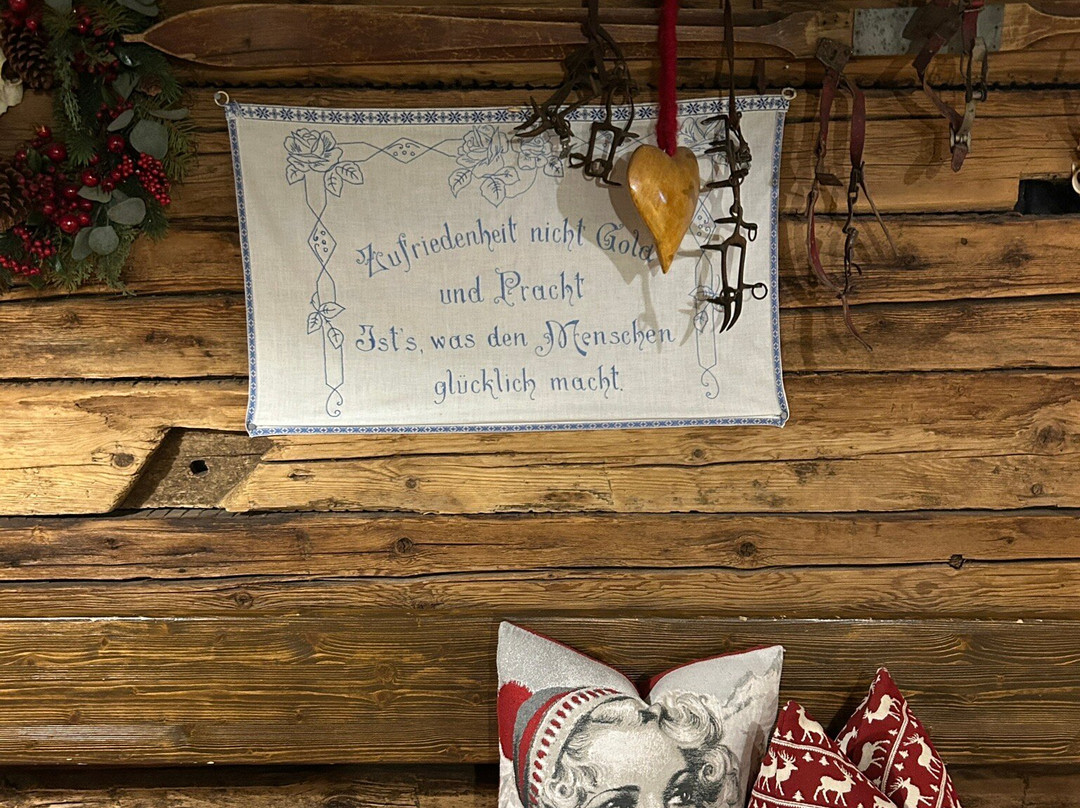 Zufriedenheit nicht Gold
und Pracht
Ist's, was den Menschen
glücklich macht.